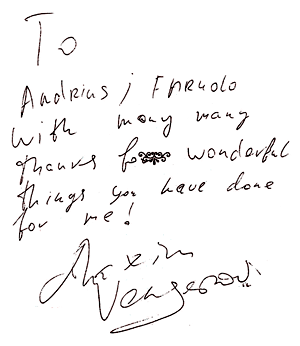 To
Andrius j Eprudo
with many many
thanks for wonderful
things you have done
for me!
Maxim
Vengerov